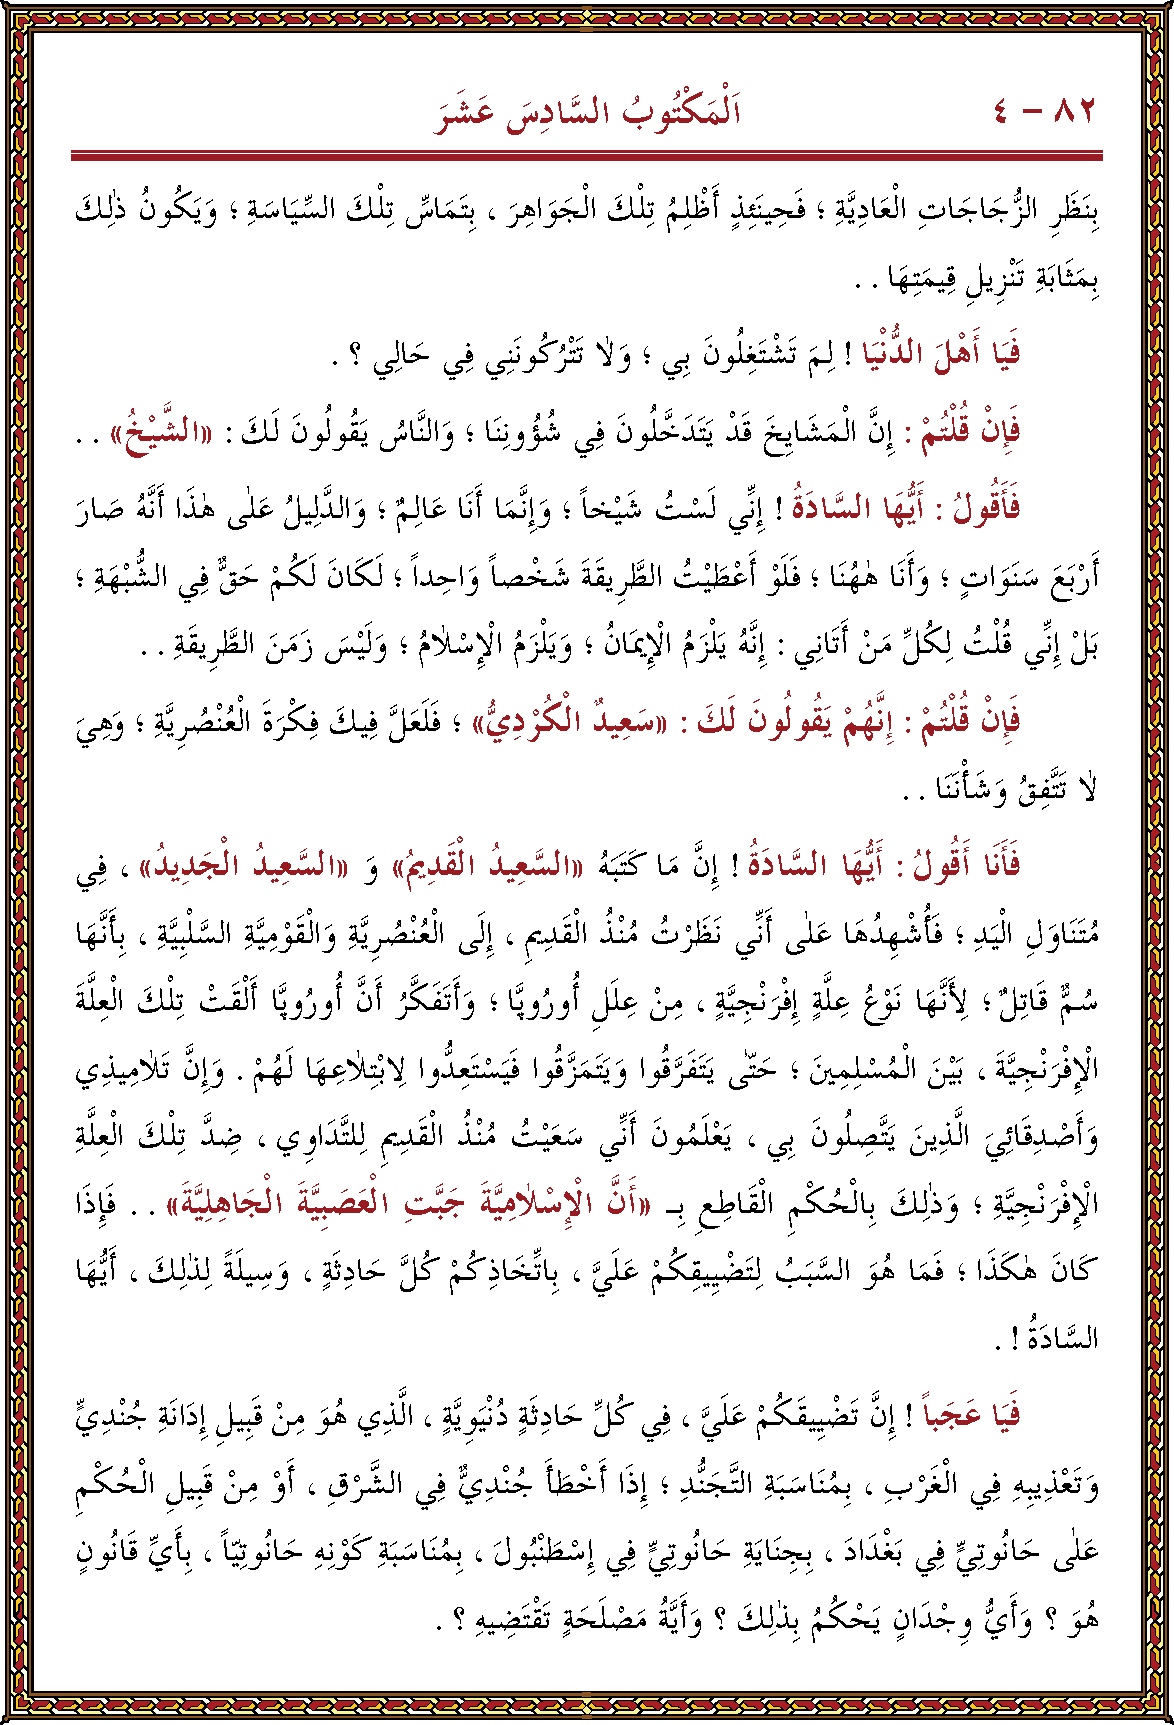 ٨٢ – ٤ اَلْمَكْتُوبُ السَّادِسَ عَشَرَ
بِنَظَرِ الزُّجَاجَاتِ الْعَادِيَّةِ ؛ فَحِينَئِذٍ أَظْلِمُ تِلْكَ الْجَوَاهِرَ ، بِتَمَاسِّ تِلْكَ السِّيَاسَةِ ؛ وَيَكُونُ ذٰلِكَ
بِمَثَابَةِ تَنْزِيلِ قِيمَتِهَا . .
فَيَا أَهْلَ الدُّنْيَا ! لِمَ تَشْتَغِلُونَ بِي ؛ وَلاٰ تَتْرُكُونَنِي فِي حَالِي ؟ .
فَإِنْ قُلْتُمْ : إِنَّ الْمَشَايِخَ قَدْ يَتَدَخَّلُونَ فِي شُؤُونِنَا ؛ وَالنَّاسُ يَقُولُونَ لَكَ : «الشَّيْخُ» . .
فَأَقُولُ : أَيُّهَا السَّادَةُ ! إِنِّي لَسْتُ شَيْخاً ؛ وَإِنَّمَا أَنَا عَالِمٌ ؛ وَالدَّلِيلُ عَلٰى هٰذَا أَنَّهُ صَارَ
أَرْبَعَ سَنَوَاتٍ ؛ وَأَنَا هٰهُنَا ؛ فَلَوْ أَعْطَيْتُ الطَّرِيقَةَ شَخْصاً وَاحِداً ؛ لَكَانَ لَكُمْ حَقٌّ فِي الشُّبْهَةِ ؛
بَلْ إِنِّي قُلْتُ لِكُلِّ مَنْ أَتَانِي : إِنَّهُ يَلْزَمُ الْإِيمَانُ ؛ وَيَلْزَمُ الْإِسْلاٰمُ ؛ وَلَيْسَ زَمَنَ الطَّرِيقَةِ . .
فَإِنْ قُلْتُمْ : إِنَّهُمْ يَقُولُونَ لَكَ : «سَعِيدٌ الْكُرْدِيُّ» ؛ فَلَعَلَّ فِيكَ فِكْرَةَ الْعُنْصُرِيَّةِ ؛ وَهِيَ
لاٰ تَتَّفِقُ وَشَأْنَنَا . .
فَأَنَا أَقُولُ : أَيُّهَا السَّادَةُ ! إِنَّ مَا كَتَبَهُ «السَّعِيدُ الْقَدِيمُ» وَ «السَّعِيدُ الْجَدِيدُ» ، فِي
مُتَنَاوَلِ الْيَدِ ؛ فَأُشْهِدُهَا عَلٰى أَنِّي نَظَرْتُ مُنْذُ الْقَدِيمِ ، إِلَى الْعُنْصُرِيَّةِ وَالْقَوْمِيَّةِ السَّلْبِيَّةِ ، بِأَنَّهَا
سُمٌّ قَاتِلٌ ؛ لِأَنَّهَا نَوْعُ عِلَّةٍ إِفْرَنْجِيَّةٍ ، مِنْ عِلَلِ أُورُوپَّا ؛ وَأَتَفَكَّرُ أَنَّ أُورُوپَّا أَلْقَتْ تِلْكَ الْعِلَّةَ
الْإِفْرَنْجِيَّةَ ، بَيْنَ الْمُسْلِمِينَ ؛ حَتّٰى يَتَفَرَّقُوا وَيَتَمَزَّقُوا فَيَسْتَعِدُّوا لِابْتِلاٰعِهَا لَهُمْ . وَإِنَّ تَلاٰمِيذِي
وَأَصْدِقَائِيَ الَّذِينَ يَتَّصِلُونَ بِي ، يَعْلَمُونَ أَنِّي سَعَيْتُ مُنْذُ الْقَدِيمِ لِلتَّدَاوِي ، ضِدَّ تِلْكَ الْعِلَّةِ
الْإِفْرَنْجِيَّةِ ؛ وَذٰلِكَ بِالْحُكْمِ الْقَاطِعِ بِـ «أَنَّ الْإِسْلاٰمِيَّةَ جَبَّتِ الْعَصَبِيَّةَ الْجَاهِلِيَّةَ» . . فَإِذَا
كَانَ هٰكَذَا ؛ فَمَا هُوَ السَّبَبُ لِتَضْيِيقِكُمْ عَلَيَّ ، بِاتِّخَاذِكُمْ كُلَّ حَادِثَةٍ ، وَسِيلَةً لِذٰلِكَ ، أَيُّهَا
السَّادَةُ ! .
فَيَا عَجَباً ! إِنَّ تَضْيِيقَكُمْ عَلَيَّ ، فِي كُلِّ حَادِثَةٍ دُنْيَوِيَّةٍ ، الَّذِي هُوَ مِنْ قَبِيلِ إِدَانَةِ جُنْدِيٍّ
وَتَعْذِيبِهِ فِي الْغَرْبِ ، بِمُنَاسَبَةِ التَّجَنُّدِ ؛ إِذَا أَخْطَأَ جُنْدِيٌّ فِي الشَّرْقِ ، أَوْ مِنْ قَبِيلِ الْحُكْمِ
عَلٰى حَانُوتِيٍّ فِي بَغْدَادَ ، بِجِنَايَةِ حَانُوتِيٍّ فِي إِسْطَنْبُولَ ، بِمُنَاسَبَةِ كَوْنِهِ حَانُوتِيّاً ، بِأَيِّ قَانُونٍ
هُوَ ؟ وَأَيُّ وِجْدَانٍ يَحْكُمُ بِذٰلِكَ ؟ وَأَيَّةُ مَصْلَحَةٍ تَقْتَضِيهِ ؟ .